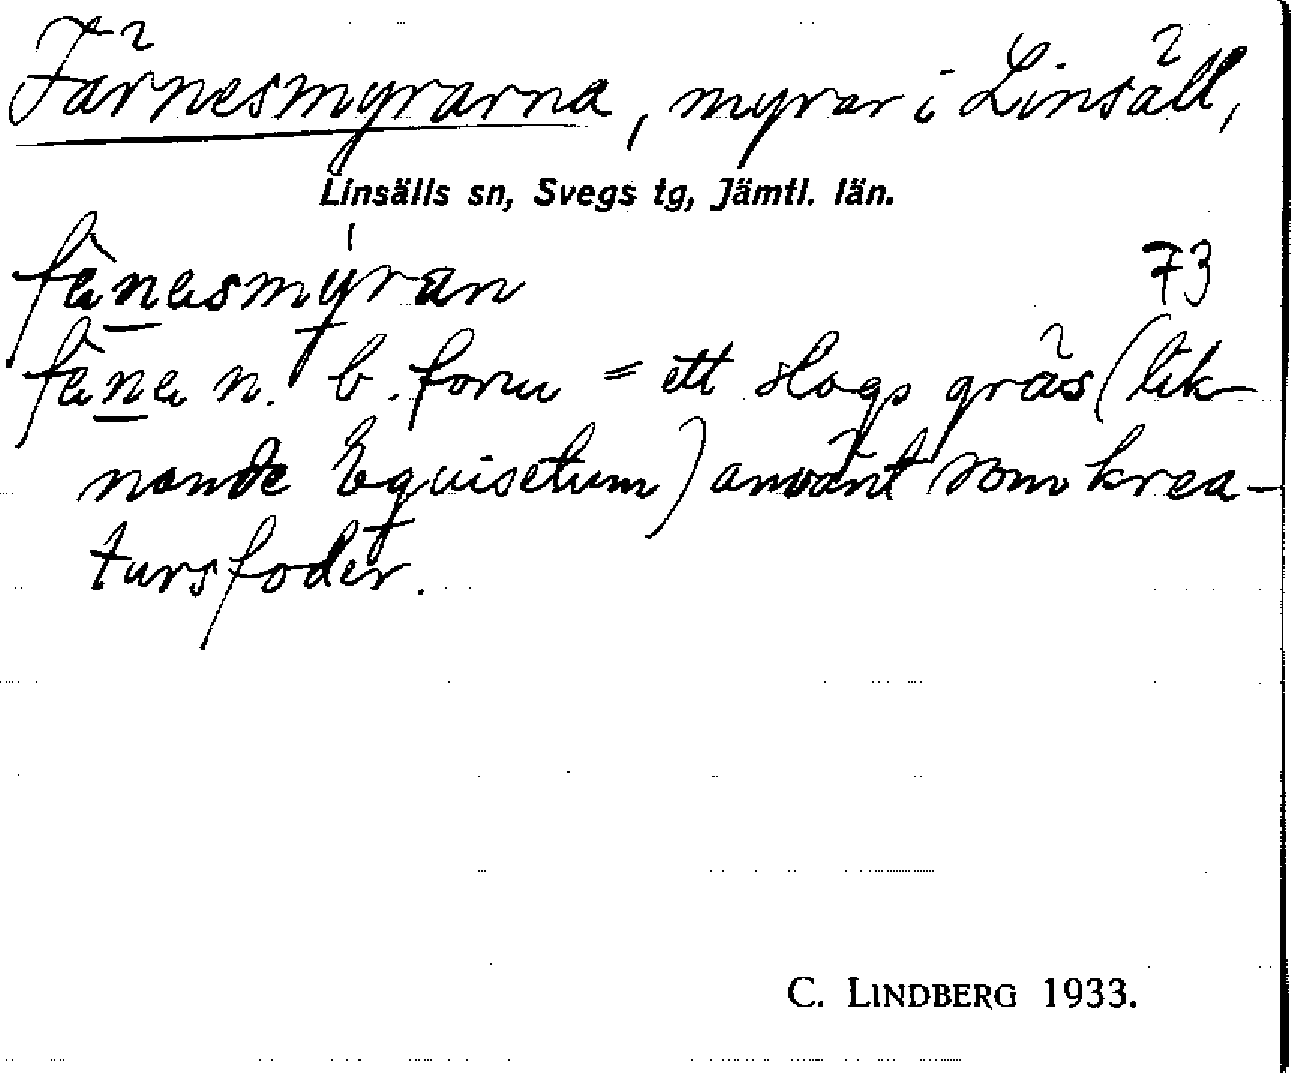 Färnesmyrarna, myrar i Linsäll,
Linsälls sn, Svegs tg, Jämtl. län.
fànasmýran 73
fàna n. b. form = ett slags gräs (lik-
nande Equisetum) använt som krea-
tursfoder.
C. LINDBERG 1933.